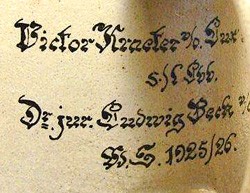 Victor Kraeter v/o. Lux
s./l. Lbb.
Dr. jur. Ludwig Beck v/
W.S. 1925/26.